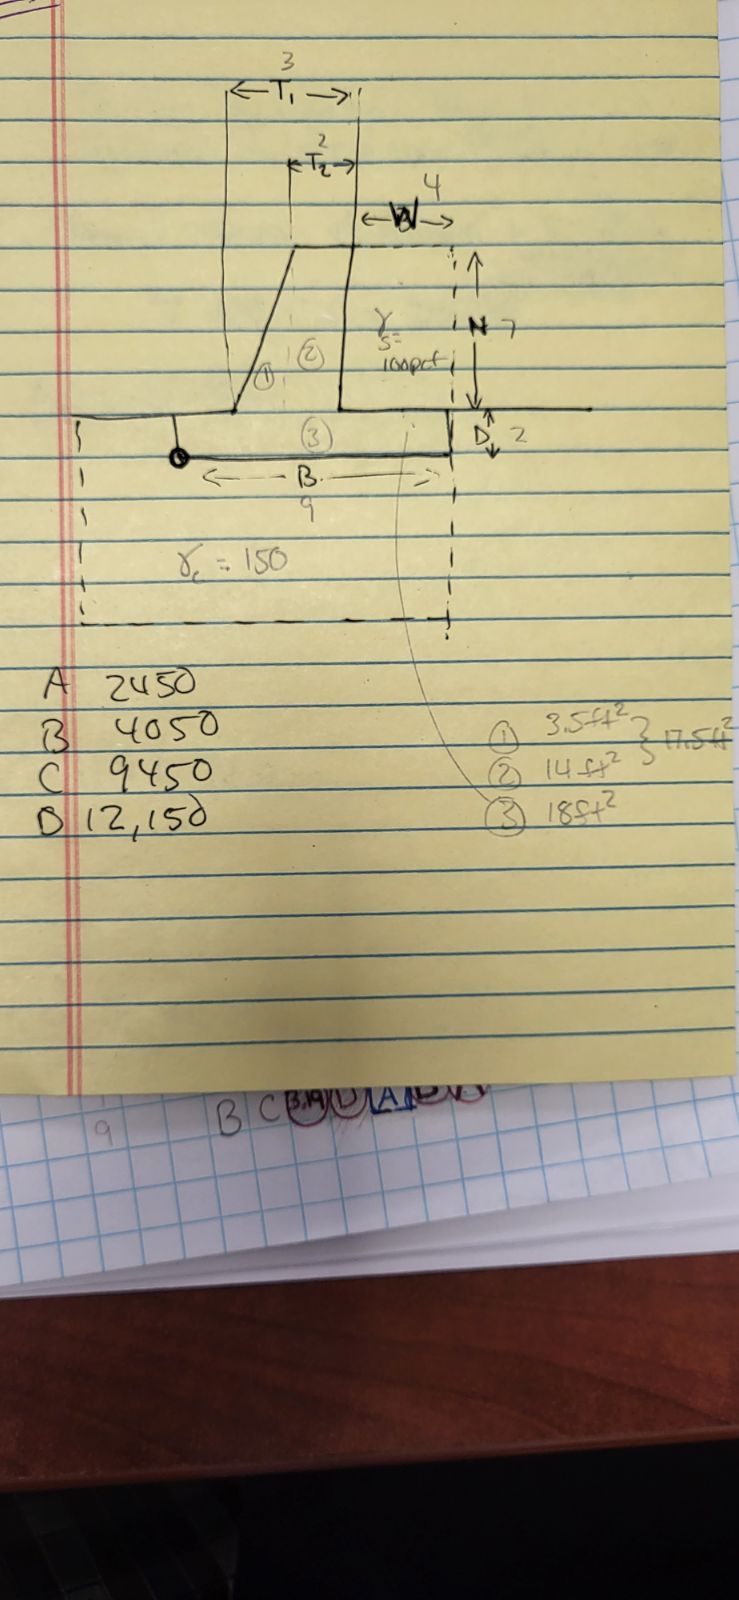 3
T₁
2
T₂
4
W
γs=
100pcf
N 7
①
②
③
D 2
B
9
γc = 150
A 2450
B 4050
C 9450
D 12,150
① 3.5ft² } 17.5ft²
② 14 ft²
③ 18ft²
9
B C B.19 D A